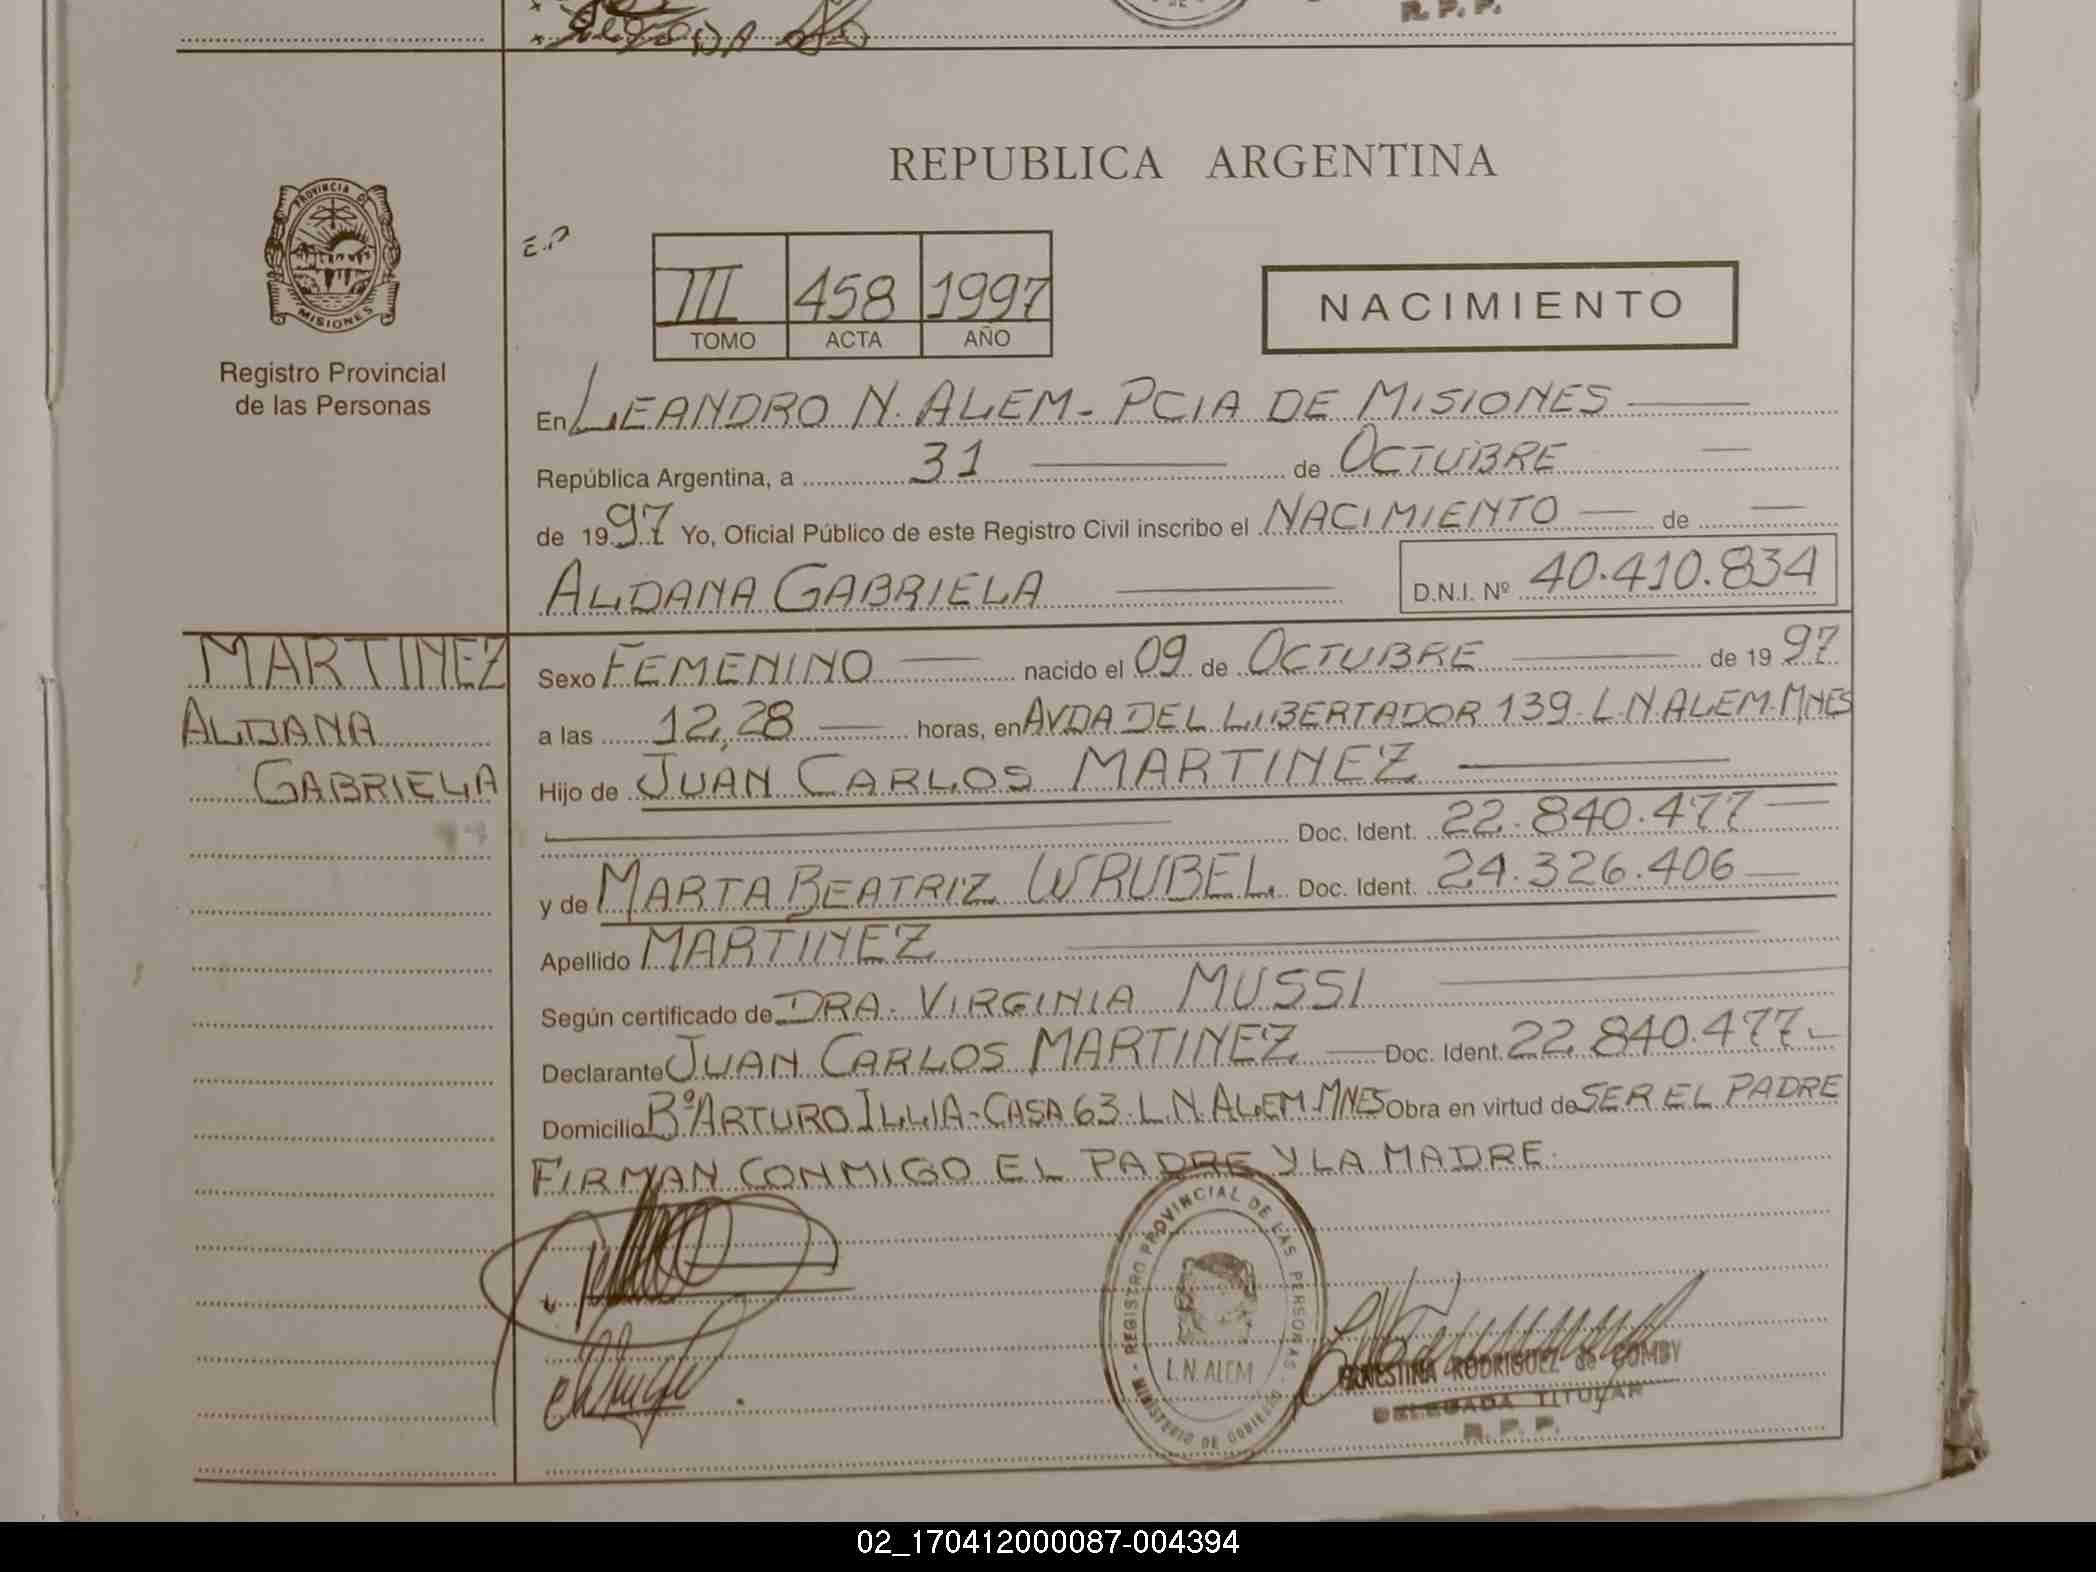 R. P. P.
REPUBLICA ARGENTINA
PROVINCIA DE
MISIONES
Registro Provincial
de las Personas
E.P
III 458 1997
TOMO ACTA AÑO
NACIMIENTO
En LEANDRO N. ALEM - PCIA DE MISIONES
República Argentina, a 31 de OCTUBRE
de 1997 Yo, Oficial Público de este Registro Civil inscribo el NACIMIENTO de
ALDANA GABRIELA D.N.I. Nº 40.410.834
MARTINEZ
ALDANA
GABRIELA
Sexo FEMENINO nacido el 09 de OCTUBRE de 1997
a las 12,28 horas, en AVDA DEL LIBERTADOR 139-L.N.ALEM-MNES
Hijo de JUAN CARLOS MARTINEZ
Doc. Ident. 22.840.477
y de MARTA BEATRIZ WRUBEL Doc. Ident. 24.326.406
Apellido MARTINEZ
Según certificado de DRA. VIRGINIA MUSSI
Declarante JUAN CARLOS MARTINEZ Doc. Ident. 22.840.477
Domicilio Bº ARTURO ILLIA-CASA 63-L.N.ALEM-MNES Obra en virtud de SER EL PADRE
FIRMAN CONMIGO EL PADRE Y LA MADRE.
REGISTRO PROVINCIAL DE LAS PERSONAS - MINISTERIO DE GOBIERNO
L.N. ALEM
ERNESTINA RODRIGUEZ de GOMBY
DELEGADA TITULAR
R. P. P.
02_170412000087-004394